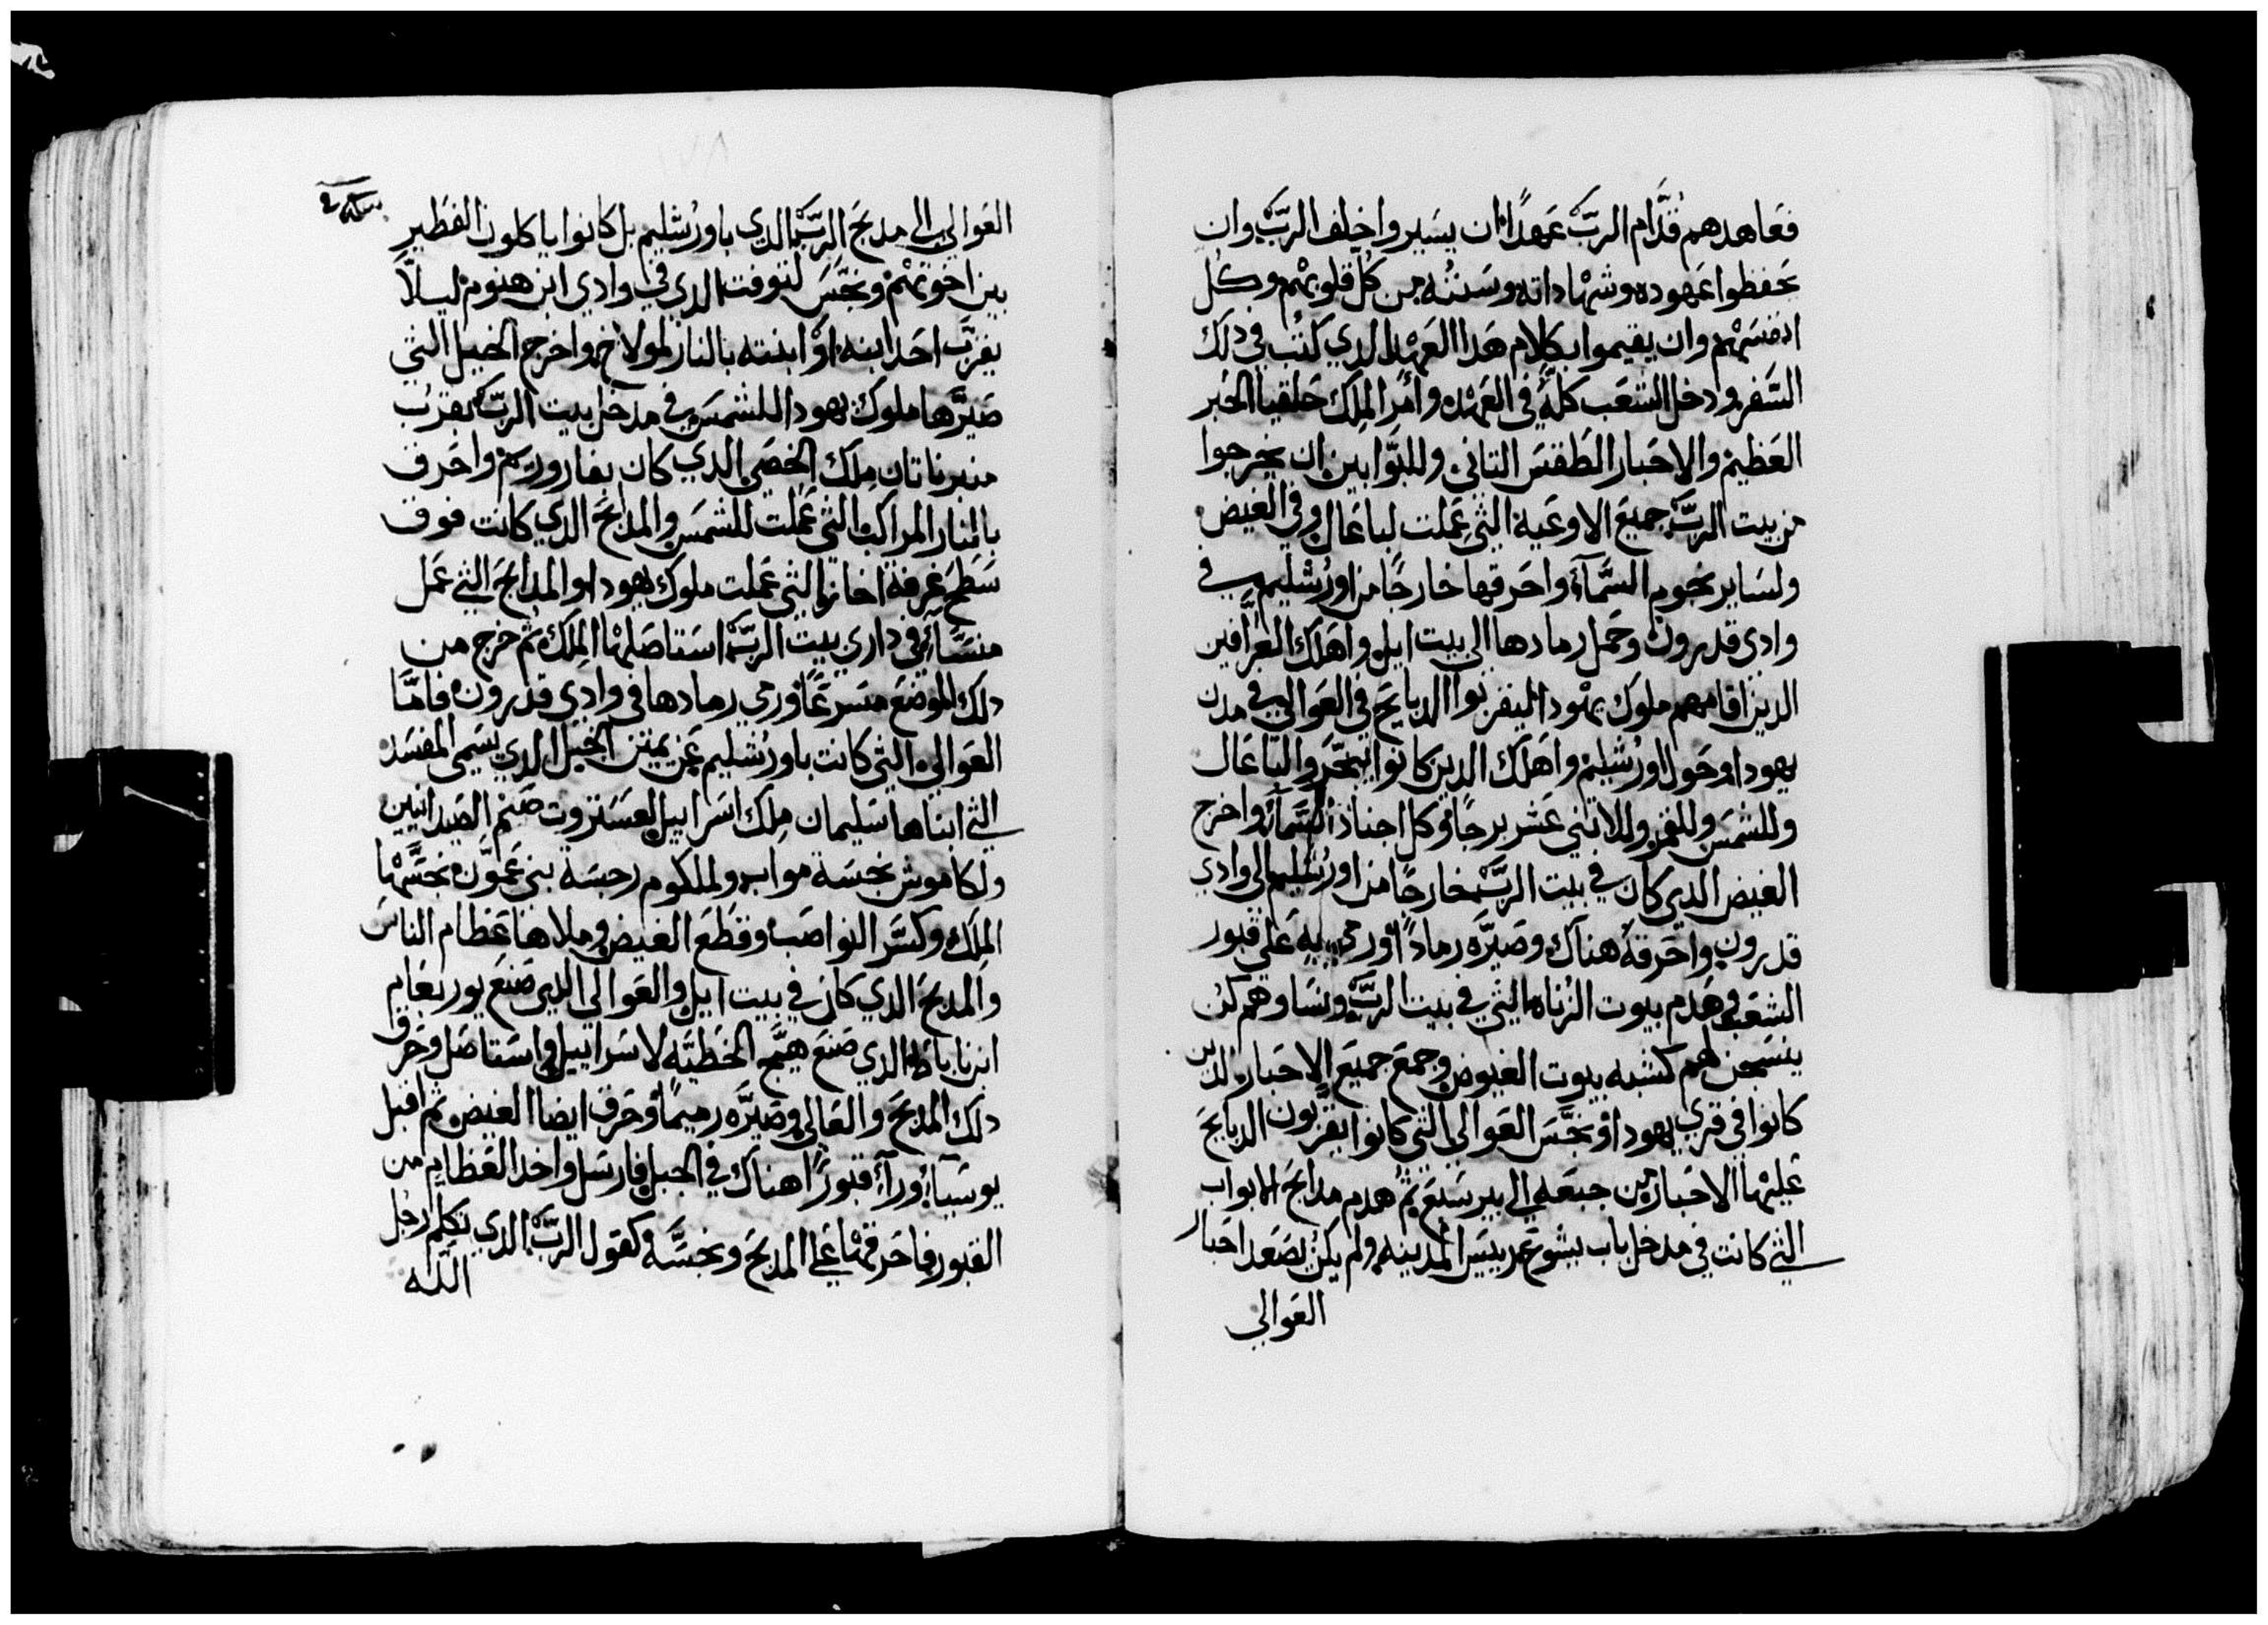 فعاهدهم قدَّام الربّ عَهدًا ان يسَيروا خلف الربّ وان
يحَفظوا عَهوده وشهاداته وسَننُه من كُل قلوبهم وكل
انفسَهم وان يقيموا بكلام هَدا العَهد الدي كتُب في دلك
السَّفر ودخل الشعَب كلهُ في العَهده وامَر الملِك حَلقيا الحَبر
العَظيم والاحَبار الطَقسَ التاني وللبوَّابين ان يخرجوا
من بيت الربّ جميعَ الاوعَية التي عَملت لباعَال وفي الغيض
ولسَاير نجوم السَّمآء واحَرقها خارجًا من اورُشليم في
وادي قدرون وحَمل رمادها الي بيت ايل واهَلك العَرَّافين
الدين اقامهم ملوك يهودا ليقربوا الدبايحَ في العَوالي في مدن
يهودا وحَول اورُشليم واهَلك الدين كانوا يبخّروا لباعَال
وللشمسَ وللقمر وللاتني عَشر برجًا وكل اجناد السَّمآء واخرج
الغيض الدي كان في بيت الربّ خارجًا من اورُشليم الي وادي
قدرون واحَرقهُ هناك وصَيرَّه رمادًا ورمي بهِ عَلي قبور
الشعَب وهَدم بيوت الزناه التي في بيت الربّ ونسَاوهم كن
ينسَجن لهم كشبه بيوت الغيوض وجمعَ جميعَ الاحَبار الدين
كانوا في قري يهودا ونجَّسَ العَوالي التي كانوا يقربَّون الدبايحَ
عَليها الاحَبار من جبعَه الي بير سَبعَ ثمُ هدم مدابحَ الابواب
التي كانت في مدخل باب يشوعَ رييسَ المدينه ولم يكن يصَعَد احَبار
العَوالي
العَوالي الي مدبحَ الربّ الدي باورُشليم بل كانوا ياكلون الفطَير
بين اخَوتهم ونجّسَ لتوفت الدي في وادي ابن هنوم ليلاَّ
يقرّب احَد ابنه اوْ ابنته بالنار لمولاخ واخرج الخيل التي
صَيرَّها ملوك يهودا للشمسَ في مدخل بيت الربّ بقرَب
منبر ناتان ملِك الخصَي الدي كان بفاروريم واحَرق
بالنار المراكب التي عَملت للشمسَ والمدابحَ الدي كانت فوق
سَطحَ غرفة احَاز التي عَملت ملوك يهودا والمدابحَ التي عَمل
منسَّا في داري بيت الربّ استاصَلها الملِك ثم خرج من
دلك الموضعَ مسَرعًا ورمي رمادها في وادي قدرون فامَّا
العَوالي التي كانت باورُشليم عَن يمين الجبل الدي يسَمي المفسَد
التي ابناها سَليمان ملِك اسَراييل لعَسَتروت صَنم الصَيدانيين
ولكاموش نجسَة مواب ولملكوم رجسَة بني عَموَّن نجسَّها
الملك وكسَّر النواصَب وقطَعَ الغيض وملاها عَظام الناسَ
والمدبحَ الدي كان في بيت ايل والعَوالي الدي صَنعَ يوربعَام
ابن ناباط الدي صَنعَ هيَّج الخطَيَّه لاسَراييل استاصَل وحَرق
دلك المدبحَ والعَالي وصَيرَّه رميمًا وحَرق ايضًا الغيض ثم اقبل
يوسَيا وراَّي قبورًا هناك في الجبل فارسَل واخد العَظام من
القبور فاحَرقها عَلي المدبحَ ونجسَّهُ كقول الربّ الدي تكلم رجُل
اللـه